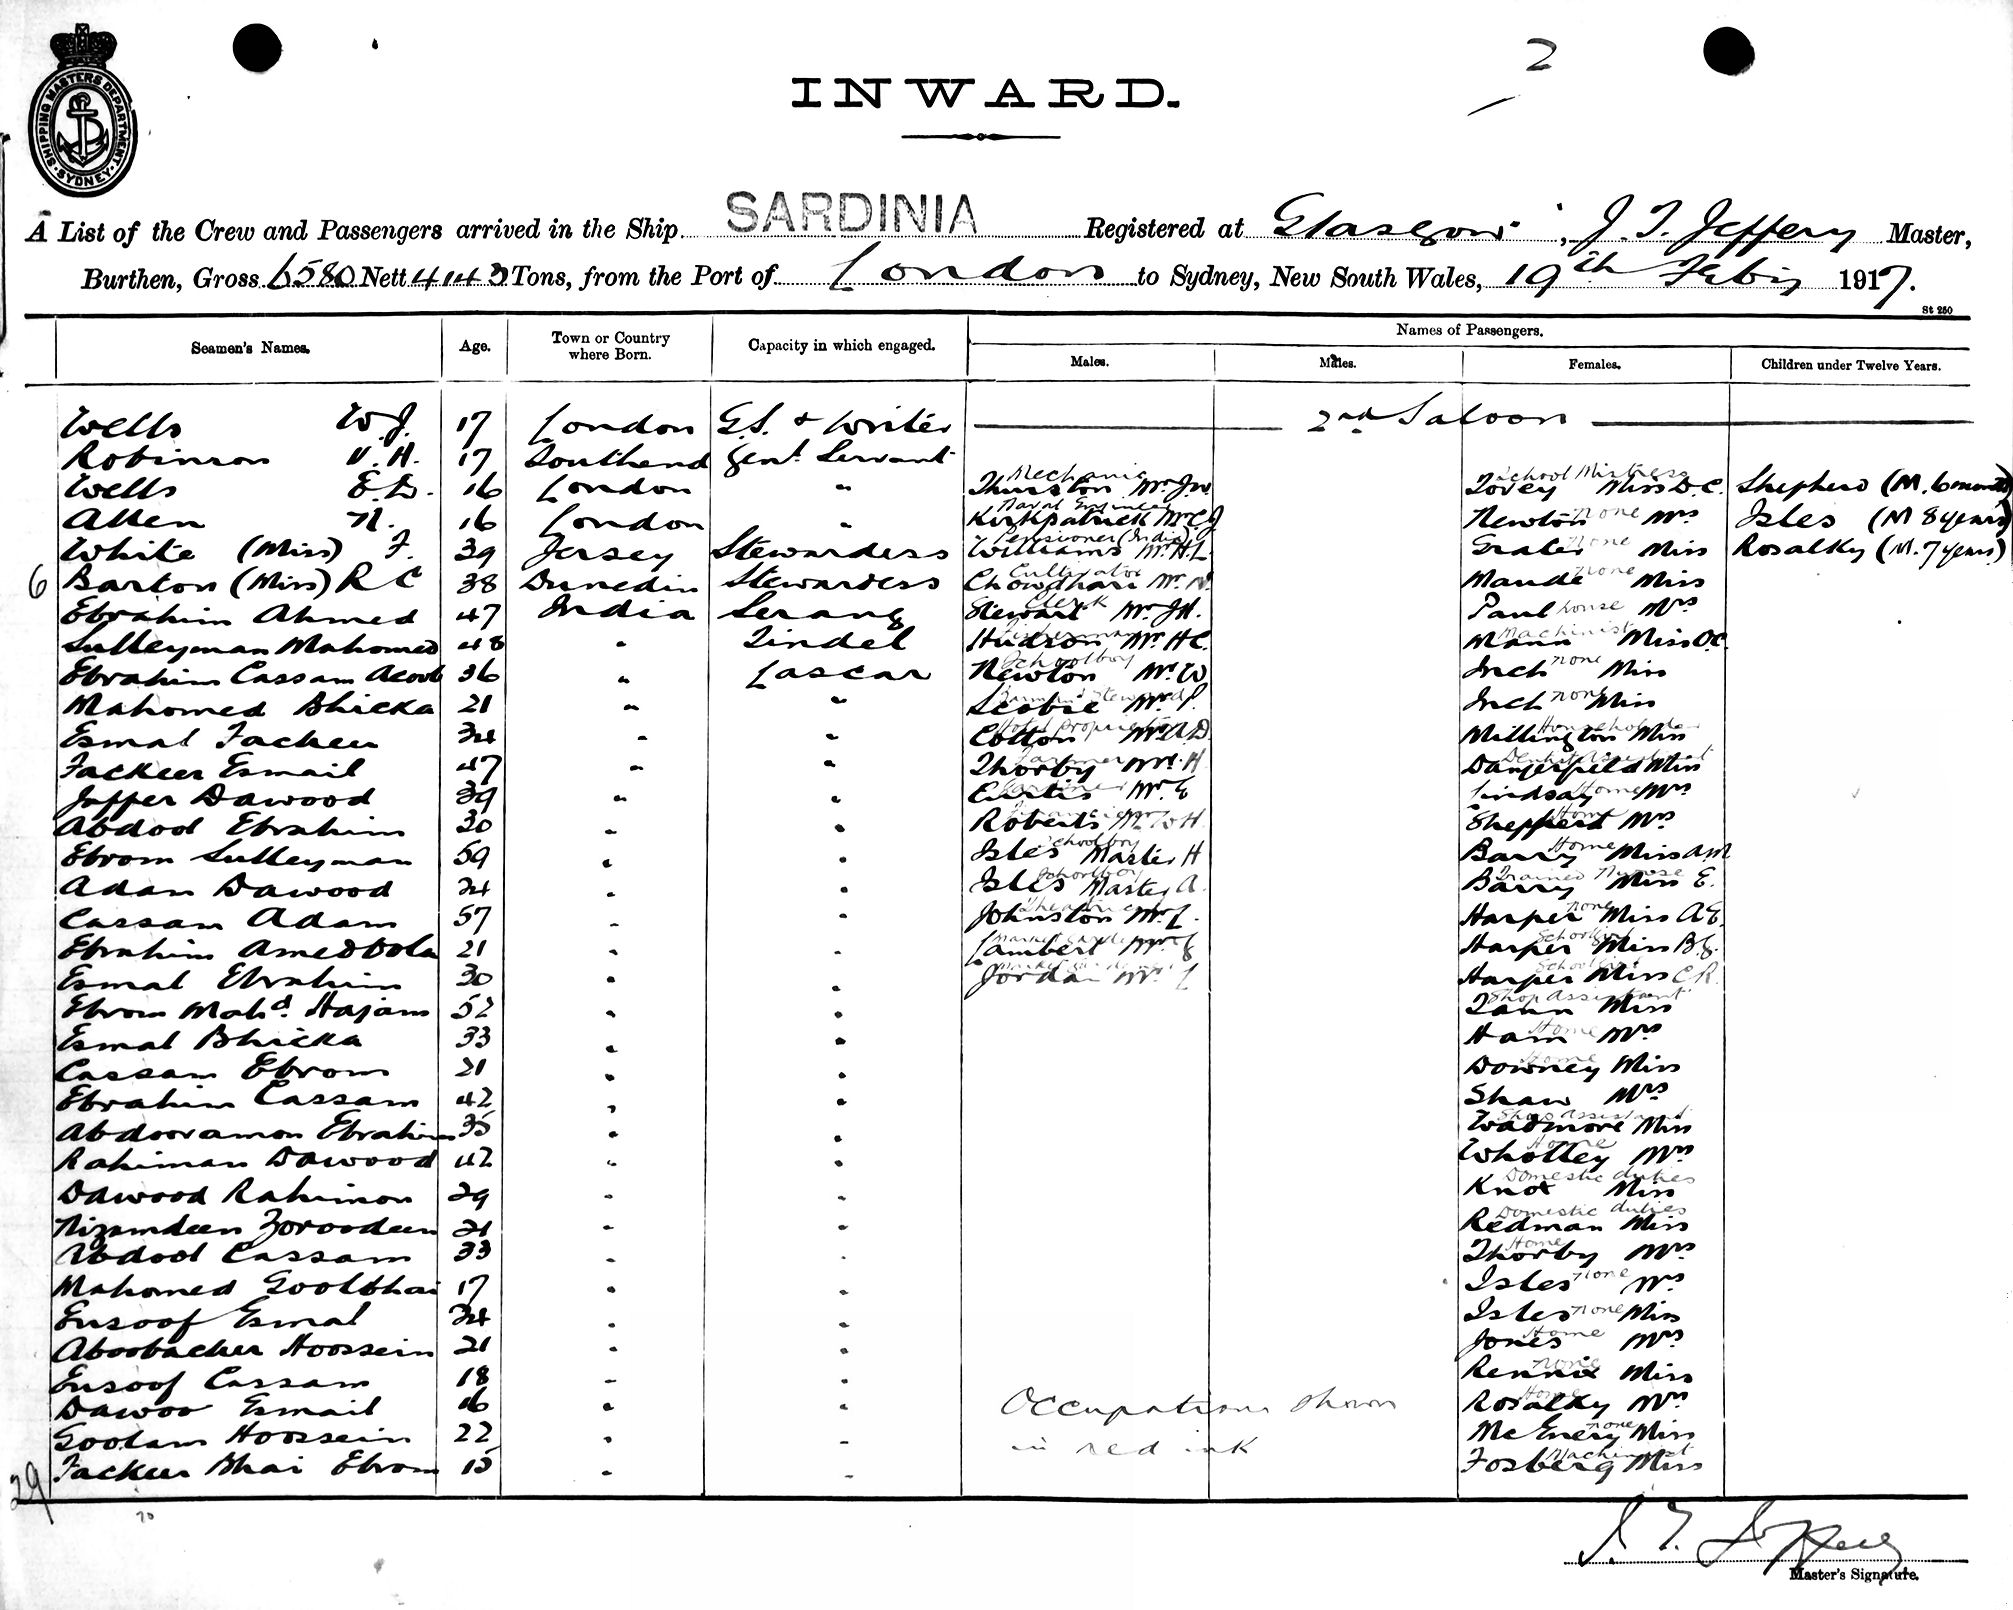 2
INWARD.
SHIPPING MASTERS DEPARTMENT
SYDNEY
A List of the Crew and Passengers arrived in the Ship SARDINIA Registered at Glasgow, J. T. Jeffery Master,
Burthen, Gross 6580 Nett 4143 Tons, from the Port of London to Sydney, New South Wales, 19th Feby 1917.
St 250
Seamen's Names. Age. Town or Country where Born. Capacity in which engaged. Names of Passengers.
Males. Males. Females. Children under Twelve Years.
2nd Saloon
Wells W.J. 17 London G.S. & Writer
Robinson V.H. 17 Southend Genl. Servant
Wells E.D. 16 London " Mechanic Thurston Mr J.W. School Mistress Tovey Miss D.C. Shepherd (M. 6 months)
Allen N. 16 London " Naval Engineer Kirkpatrick Mr C.J. Newton none Mrs Isles (M 8 years)
White (Miss) F. 39 Jersey Stewardess Pensioner (India) Williams Mr H.L. none Miss Rosalky (M. 7 years)
6 Barton (Miss) R C 38 Dunedin Stewardess Cultivator Chowdhari Mr N. Maude none Miss
Ebrahim Ahmed 47 India Serang Clerk Stewart Mr J.H. Paul house Mrs
Sulleyman Mahomed 48 " Tindel Hudson Mr H C. Machinist Mann Miss O.C.
Ebrahim Cassam Acoob 36 " Lascar Schoolboy Newton Mr W Inch none Miss
Mahomed Bhicka 21 " " Scobie Mr P. Inch none Miss
Esmal Fackeer 34 " " Hotel Proprietor Cotton Mr A.D. Household Millington Miss
Fackeer Esmail 47 " " Farmer Thorby Mr H Dentist Assistant Dangerfield Miss
Jaffer Dawood 39 " " Curtis Mr E Lindsay Home Mrs
Abdool Ebrahim 30 " " Roberts Mr W H. Home Shepherd Mrs
Ebrom Sulleyman 59 " " Schoolboy Isles Master H Home Barry Miss A.M.
Adam Dawood 24 " " Schoolboy Isles Master A. Trained Nurse Barry Miss E.
Cassam Adam 57 " " Johnston Mr L. Harper none Miss A.E.
Ebrahim Amedbola 21 " " Lambert Mr Schoolgirl Harper Miss B.J.
Esmal Ebrahim 30 " " Jordan Mr L Schoolgirl Harper Miss C R.
Ebrom Mahd. Hajam 52 " " Shop Assistant Tann Miss
Esmal Bhicka 33 " " Ham Home Mrs
Cassam Ebrom 21 " " Home Downey Miss
Ebrahim Cassam 42 " " Shaw Mrs
Abdooramon Ebrahim 35 " " Shop Assistant Wadmore Miss
Rahiman Dawood 42 " " Home Wholley Mrs
Dawood Rahimon 29 " " Domestic duties Knox Miss
Nizamdeen Zoroodeen 21 " " Domestic duties Redman Miss
Abdool Cassam 33 " " Home Thorby Mrs
Mahomed Goolbhai 17 " " Isles none Mrs
Eusoof Esmal 24 " " Isles none Miss
Aboobacker Hoossein 21 " " Jones Home Mrs
Eusoof Cassam 18 " " none Rennie Miss
Dawoo Esmail 16 " " Occupations shown Home Rosalky Mrs
Goolam Hoossein 22 " " in red ink McEnery none Miss
29 Fackeer Bhai Ebrom 15 " " Machinist Fosberg Miss
70
J. T. Jeffery
Master's Signature.